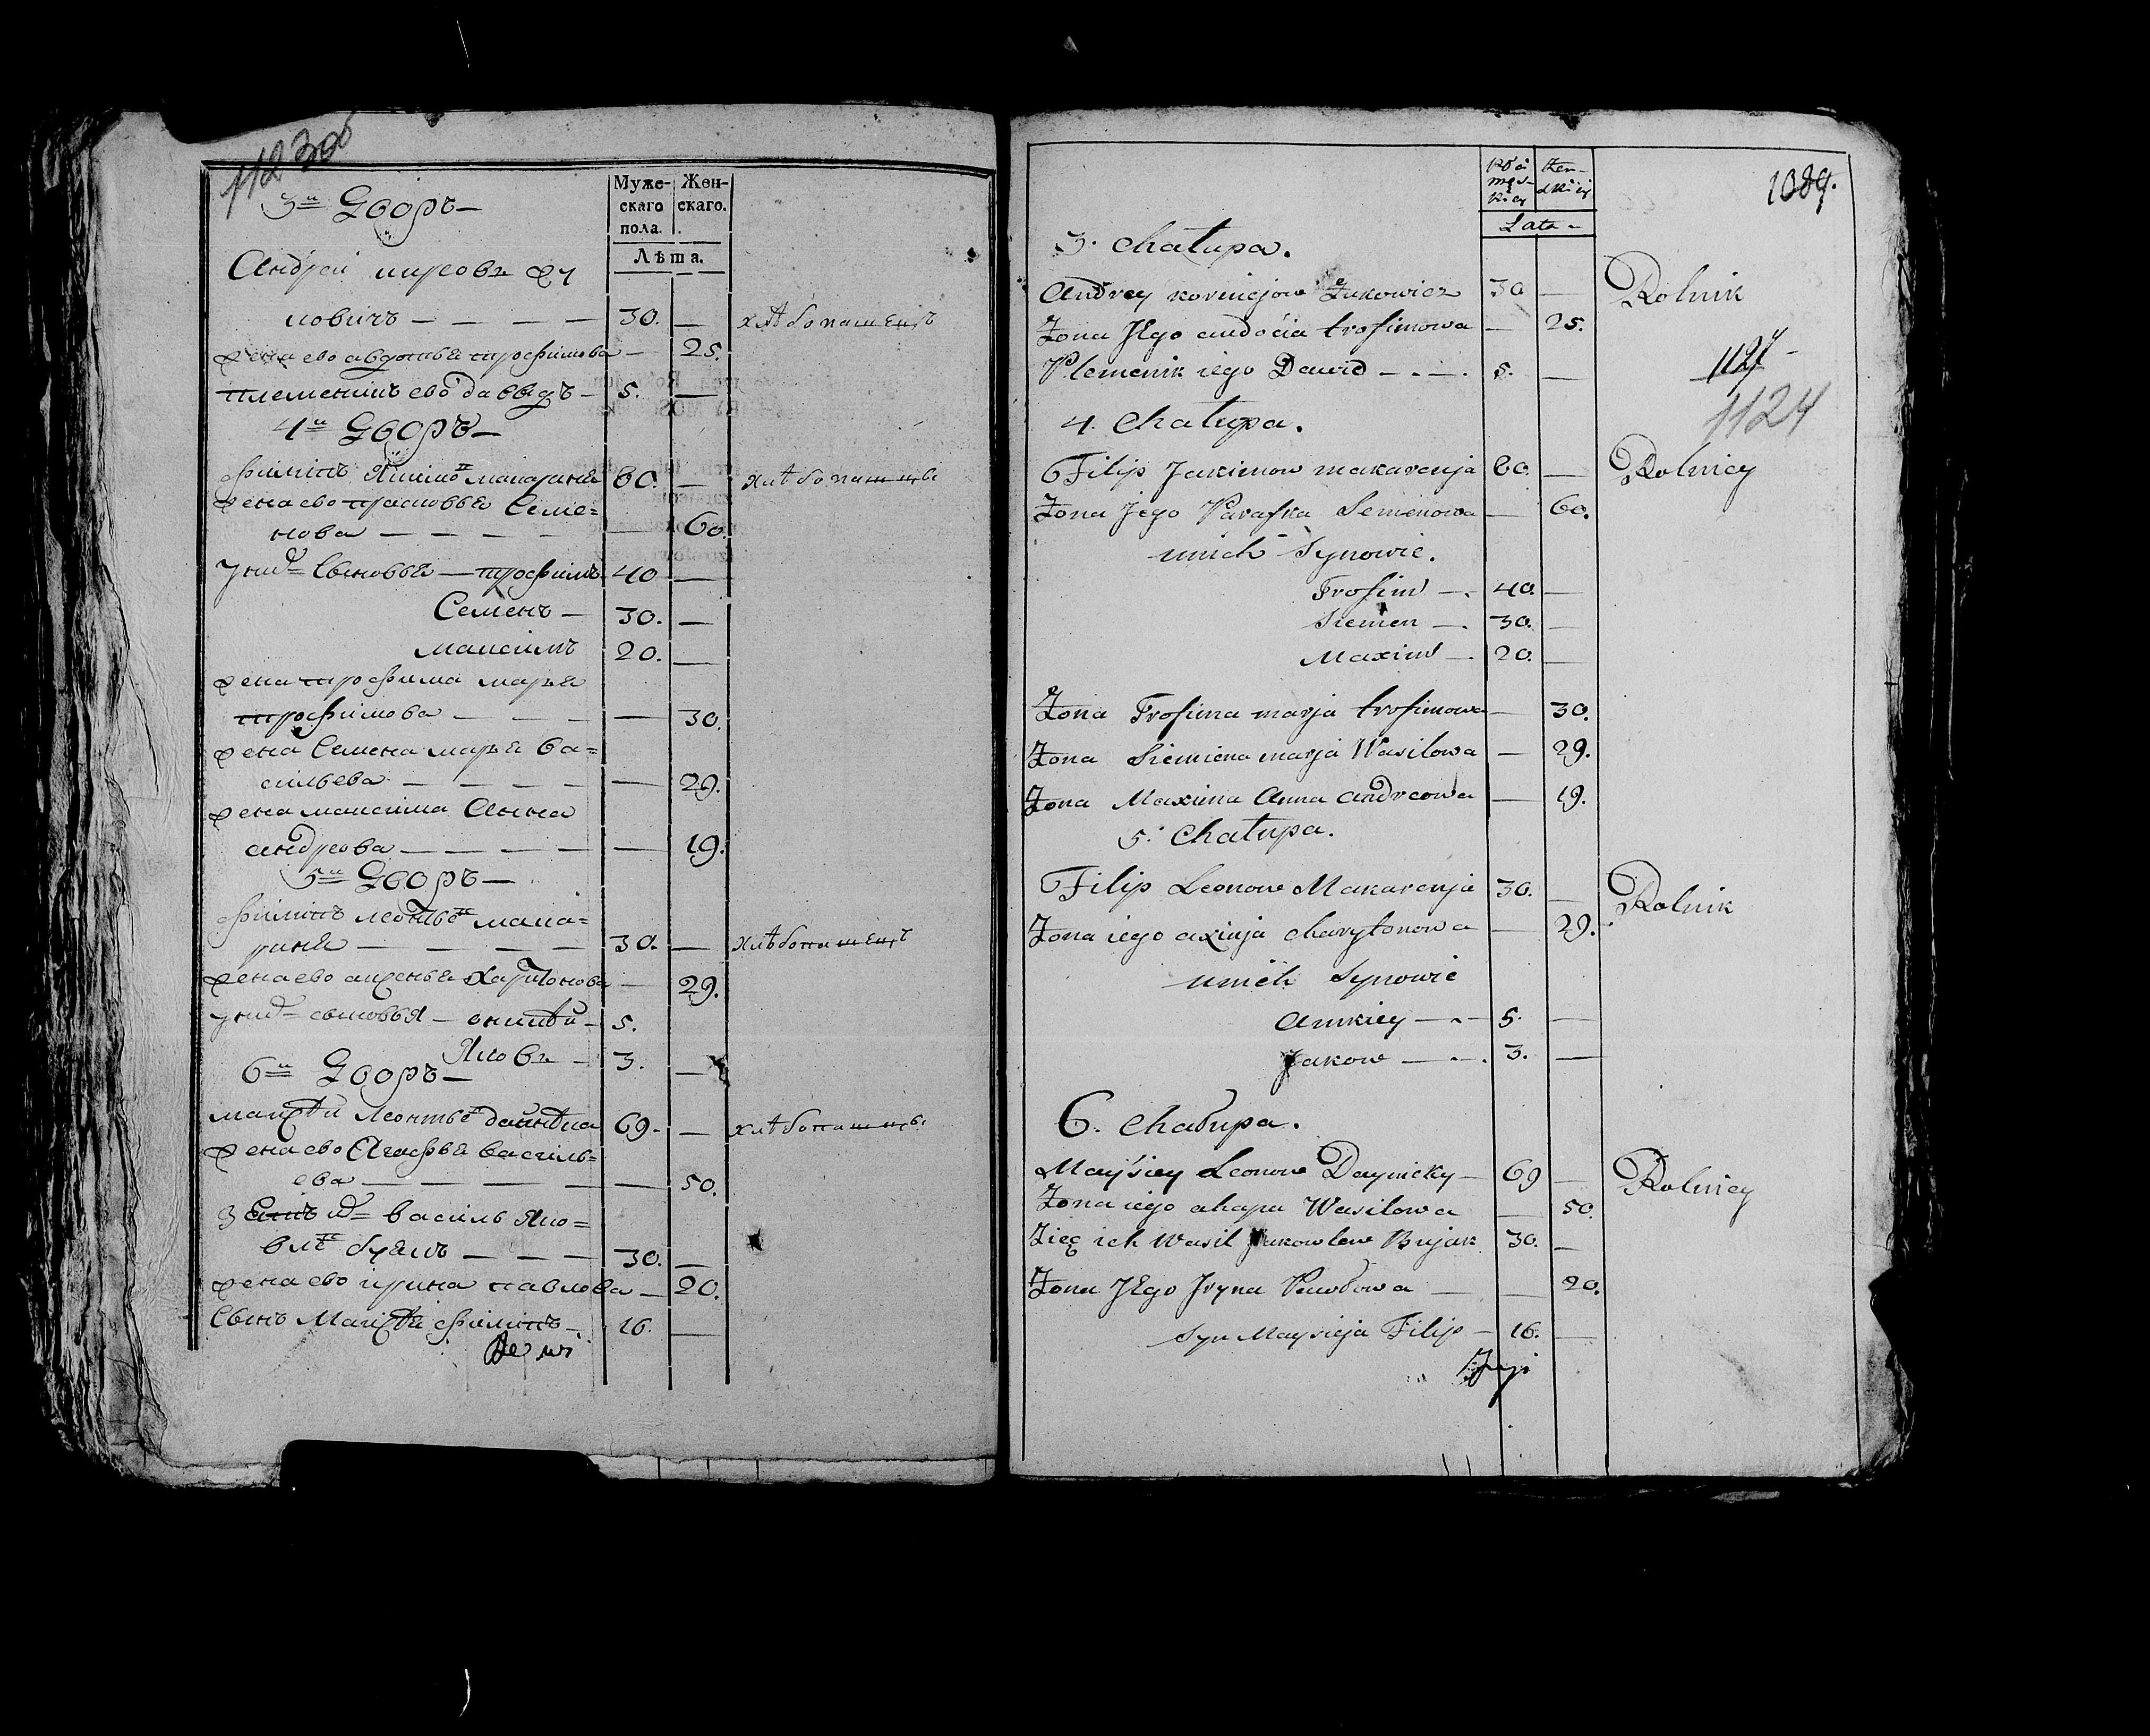 112 306
3й Дворъ —
Муже-
скаго
пола.
Жен-
скаго.
Лѣта.
Андрей жу
ковичъ — — — — 30. —  хлѣбопашецъ
жена ево авдотья трофимова — 25.
племеникъ ево давыдъ — 5. —
4й Дворъ —
филипъ Якимо макареня 80. — хлѣбопашцы
жена ево прасковья Семе=
нова — — — — — 60.
у нихъ Сыновья — трофимъ 40 —
Семенъ — 30. —
максимъ 20. —
жена трофима марья
трофимова — — — — 30.
жена Семена марья Ва=
сильева — — — — — 29.
жена максима Анна
андреова — — — — — 19.
5й Дворъ —
филипъ леонтье мака=
реня — — — — 30. — хлѣбопашецъ
жена ево аксенья Харитонова — 29.
у нихъ сыновья — 5.
Яковъ — 3. —
6й Дворъ —
леонтье 69. — хлѣбопашцы
жена ево Агафья василь=
ева — — — — — 50.
василь Яко=
вле буякъ — — — 30. —
жена ево ирина павлова — 20.
Сынъ филипъ — 16. —
męs-
kiey
żen-
skiey
Lata -
1089.
3. Chałupa.
Andrey Żukowicz 30 — Rolnik
Żona Jego audocia trofimowa — 25.
Plemenik iego Dawid — . — . 5. —
1124
1124
4. Chałupa.
Filip Jakimow makarenja 80. — Rolnicy
Żona Jego Paraska Semenowa — 60.
unich Synowie.
Trofim — . 40. —
Siemen — . 30. —
Maxim — 20. —
Żona Trofima marja trofimowa — 30.
Żona Siemiena marja Wasilowa — 29.
Żona Maxima Anna andreowa — 19.
5. Chałupa.
Filip Leonow Makarenja 30. — Rolnik
Żona iego axinja charytonowa — 29.
unich Synowie
Anikiey — . — 5. —
Jakow — . — . 3. —
6. Chałupa.
Mayśiey Leonow Daynieky — 69 — Rolnicy
Żona iego ahapa Wasilowa — 50.
Zięć ich Wasil Jakowlew Bujak 30. —
Żona Jego Jryna Pawłowa — — 20.
Syn Maysieja Filip — 16. —